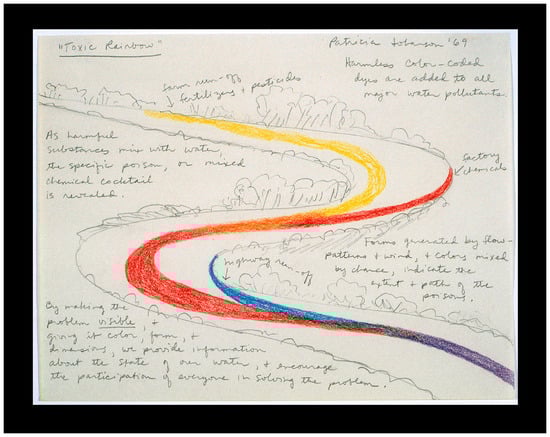 "Toxic Rainbow"
Patricia Johanson '69
Harmless color-coded
dyes are added to all
major water pollutants.
farm run-off
fertilizers + pesticides
As harmful
substances mix with water,
the specific poison, or mixed
chemical cocktail
is revealed.
factory
chemicals
Forms generated by flow-
patterns + wind, + colors mixed
by chance, indicate the
extent + path of the
poisons.
highway run-off
By making the
problem visible, +
giving it color, form, +
dimensions, we provide information
about the state of our water, + encourage
the participation of everyone in solving the problem.